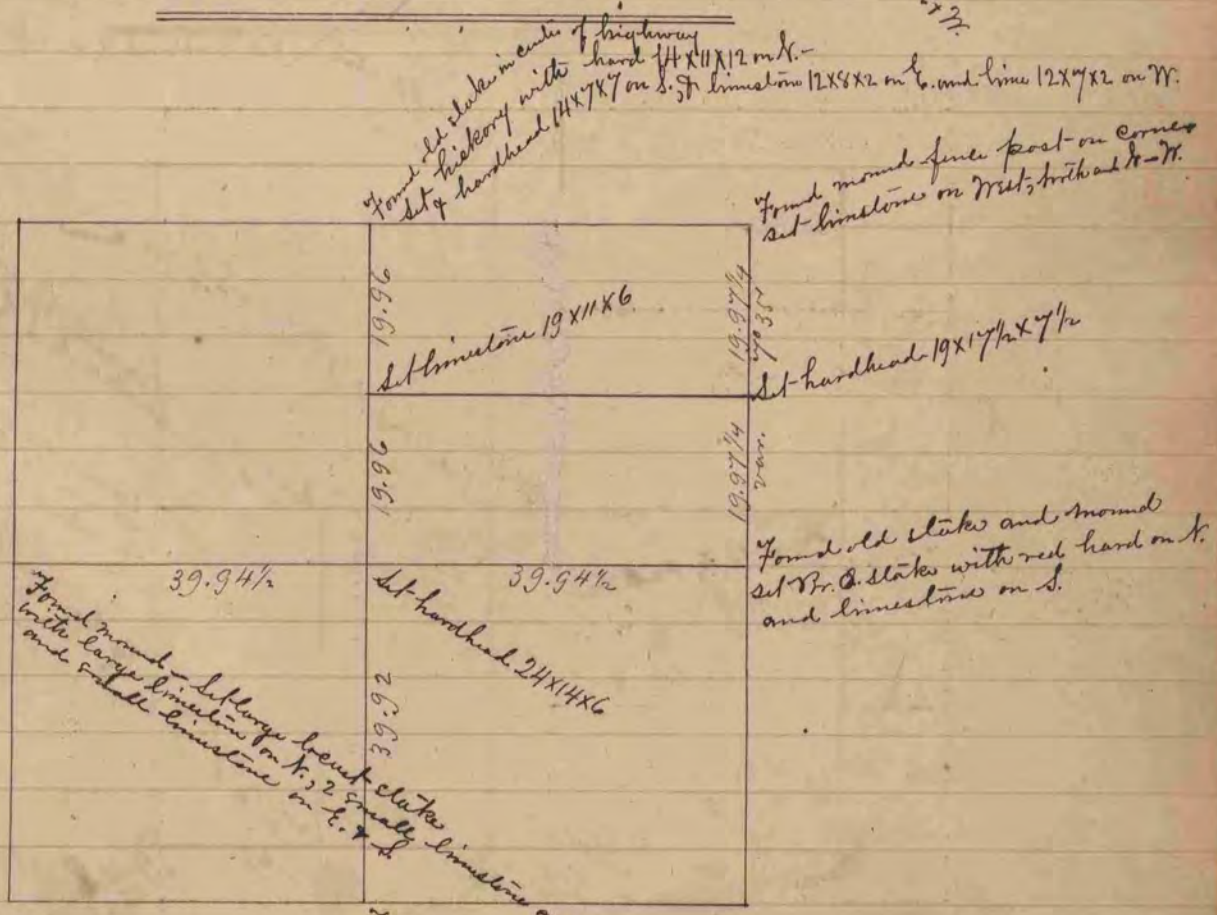 & W.
Found old stake in center of highway
Set hickory with hard 14X11X12 on N.-
& hardhead 14X7X7 on S., limestone 12X8X2 on E. and lime 12X7X2 on W.
Found mound fence post on corner
set limestone on West, North and N-W.
19.96
Set limestone 19X11X6
19.97 1/4
7° 35'
Set hardhead 19X17 1/2X7 1/2
19.96
19.97 1/4
var.
Found old stake and mound
set Br. O. stake with red hard on N.
and limestone on S.
39.94 1/2
39.94 1/2
Found mound - Set large locust stake
with large limestone on N., 2 small limestone
and small limestone on E. & S.
Set hardhead 24X14X6
39.92